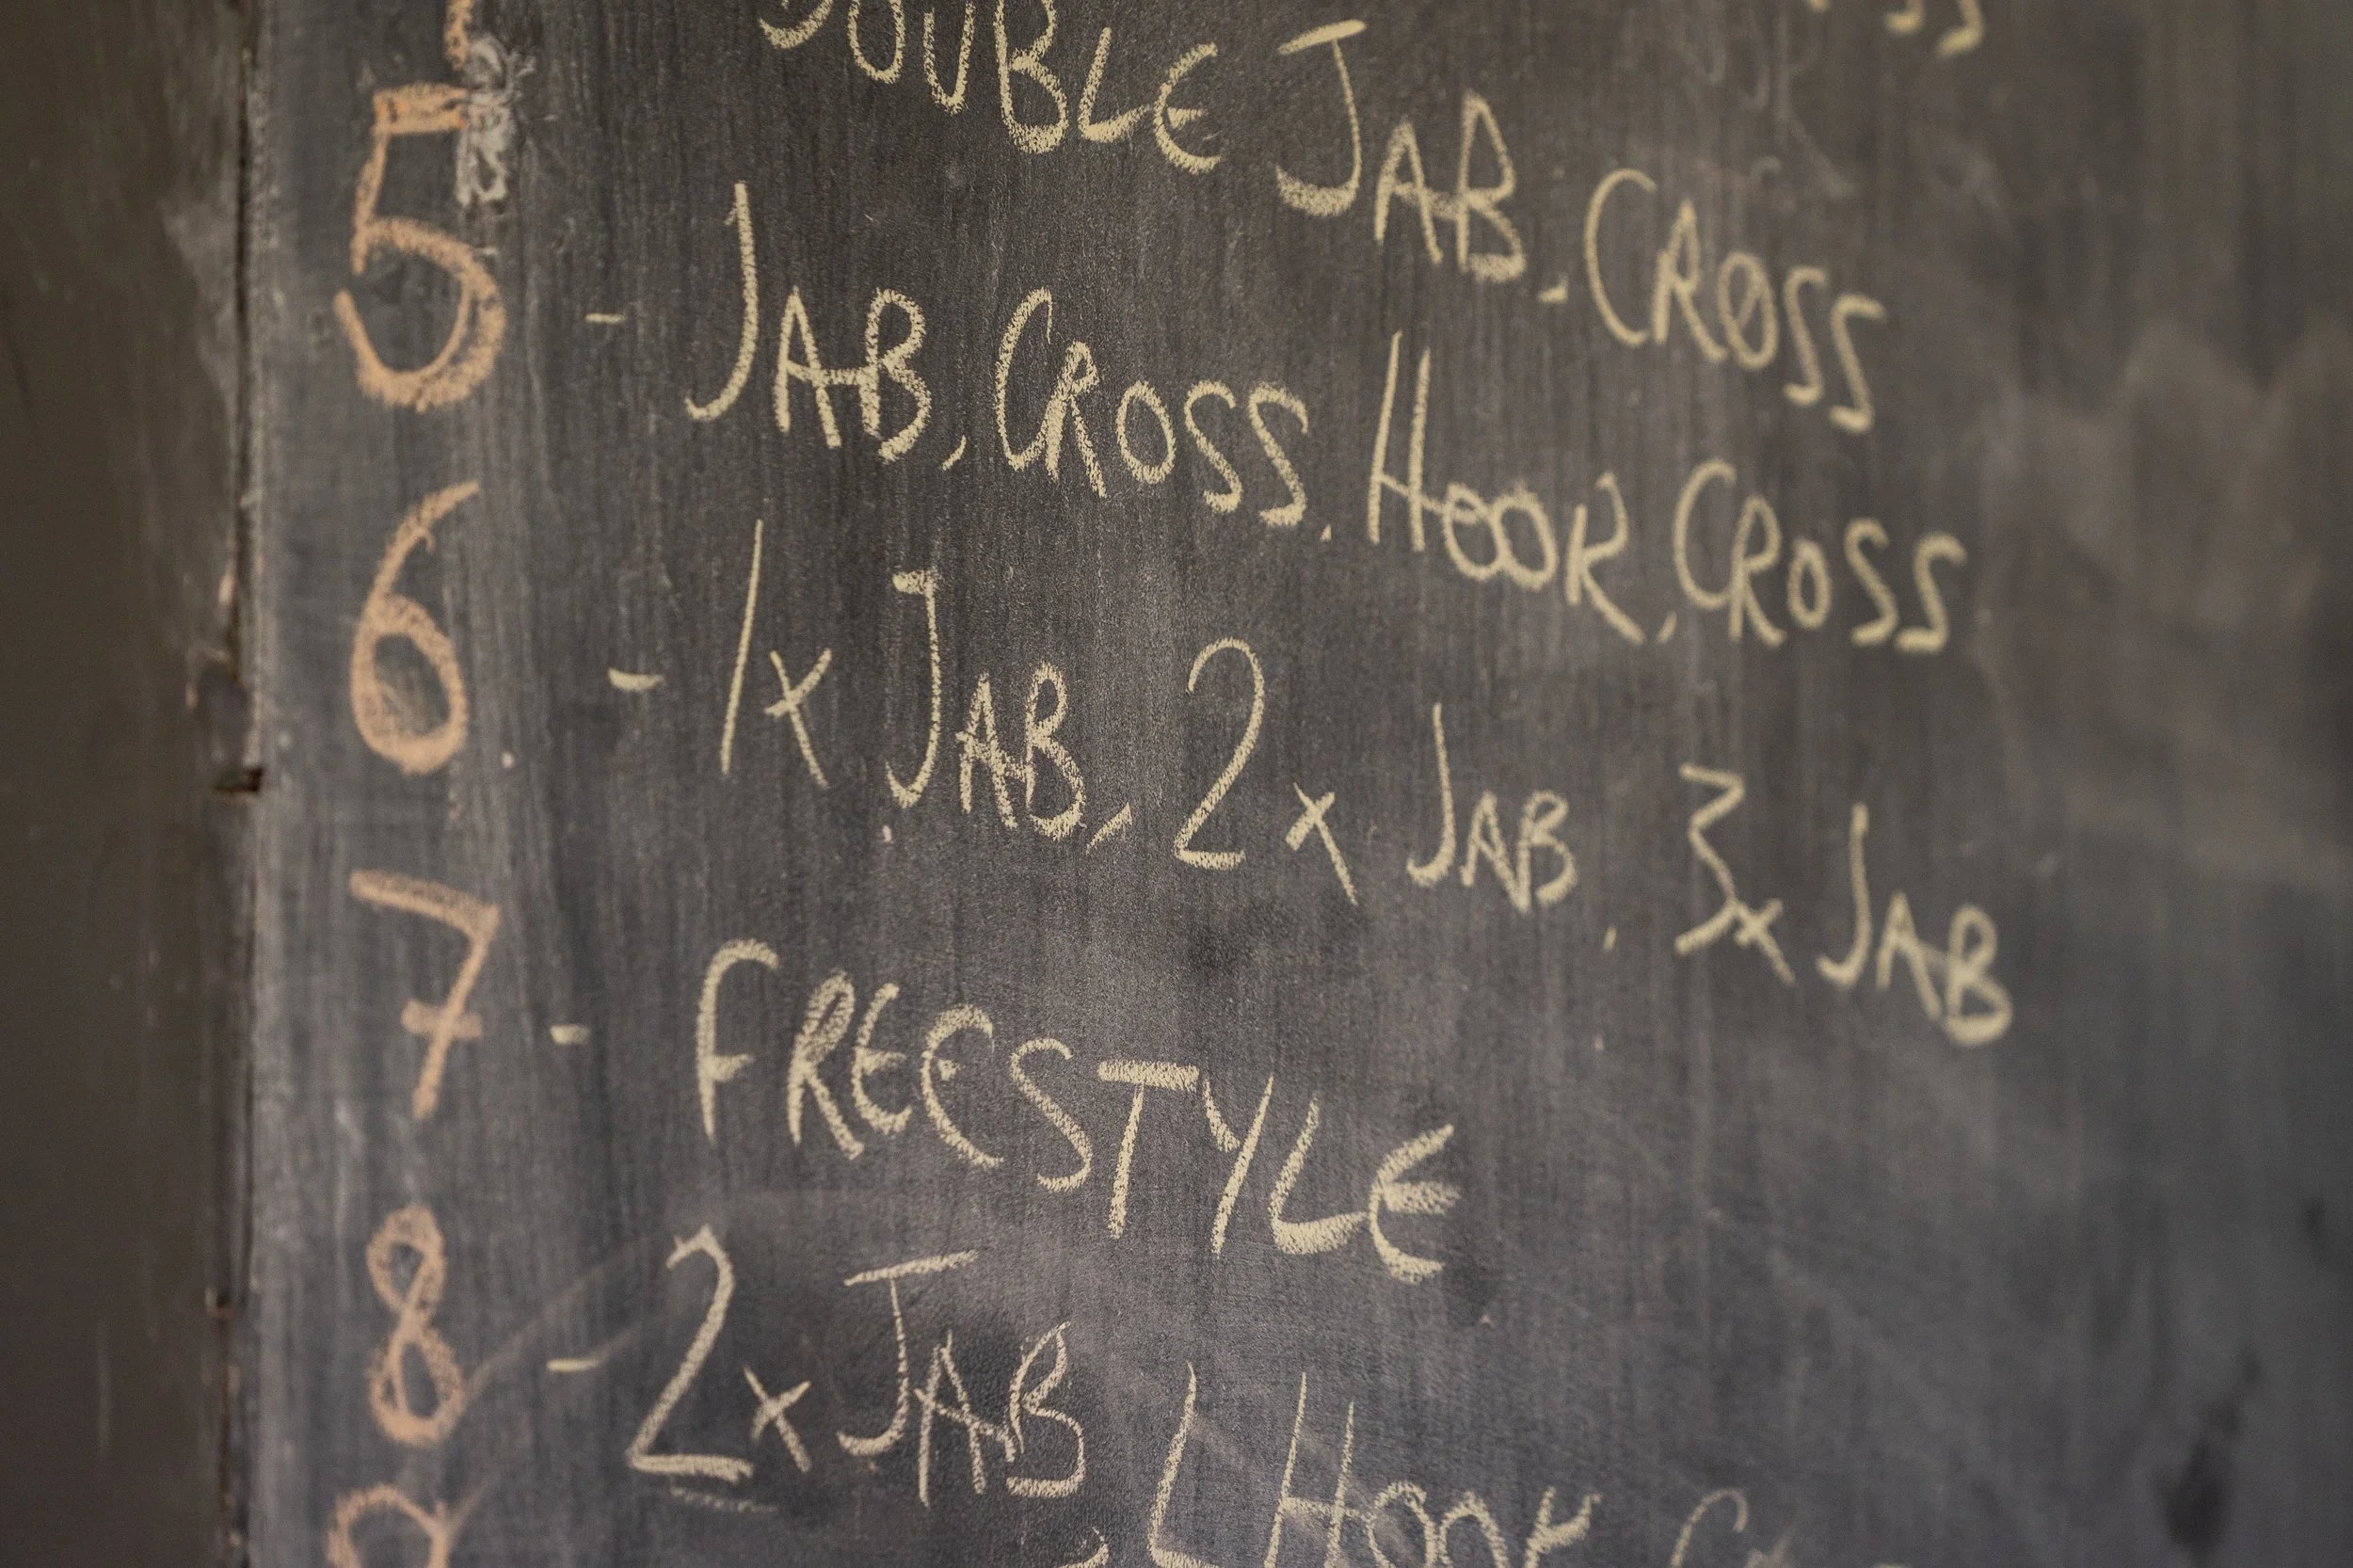 DOUBLE JAB, CROSS
5 - JAB, CROSS, HOOK, CROSS
6 - 1x JAB, 2x JAB, 3x JAB
7 - FREESTYLE
8 - 2x JAB, L HOOK